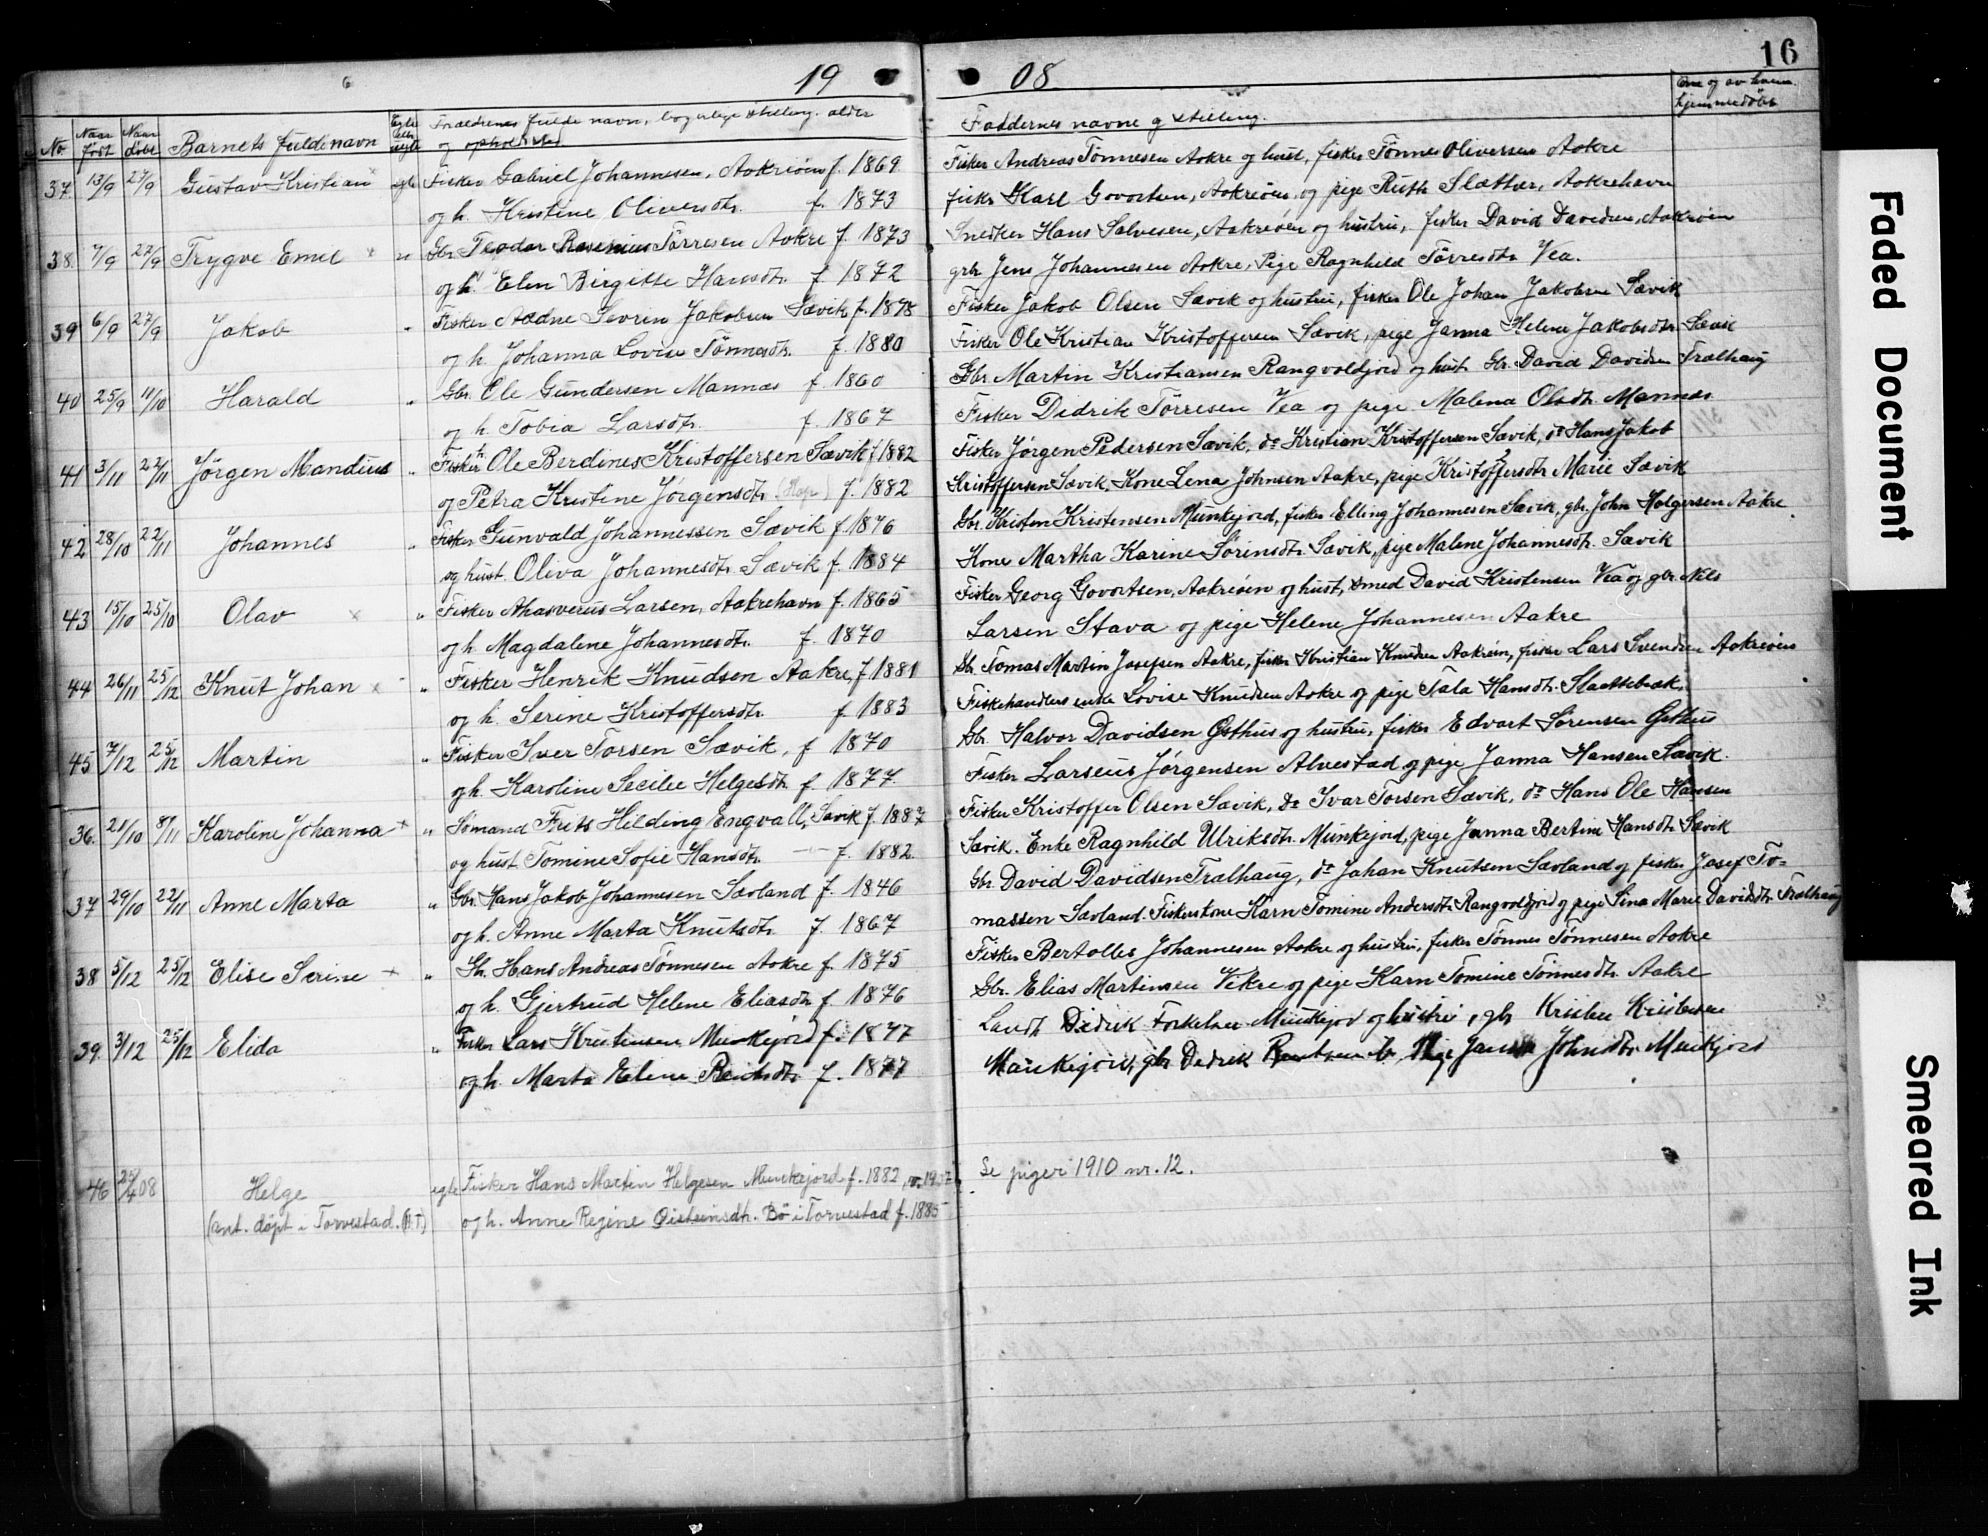 16
19 08.
No. Naar født Naar døbt Barnets fulde navn Egte eller uegte Forældrenes fulde navn, borgerlige stilling, alder og opholdssted Faddernes navne og stilling. Om og av hvem hjemmedøbt
37. 13/9 27/9 Gustav Kristian egte Fisker Gabriel Johannesen, Aakreøen f. 1869 Fisker Andreas Tönnesen Aakre og hust, fisker Tönnes Oliversen Aakre
og h. Kristine Oliversdtr. f. 1873 fisker Karl Govertsen, Aakreøen, og pige Ruth Slætter, Aakrehavn
38. 7/9 27/9 Trygve Emil " Gbr. Teodor Rosenius Törresen Aakre f. 1873 Snedker Hans Salvesen, Aakreøen og hustru, fisker David Davidsen, Aakreøen
og h. Elen Birgitte Hansdtr. f. 1872 gbr. Jens Johannesen Aakre, Pige Ragnhild Törresdtr. Vea.
39 6/9 27/9 Jakob " Fisker Aadne Sevren Jakobsen Sævik f. 1878 Fisker Jakob Olsen Sævik og hustru, fisker Ole Johan Jakobsen Sævik
og h. Johanna Lovise Tönnesdtr. f. 1880 Fisker Ole Kristian Kristoffersen Sævik, pige Janna Helene Jakobsdtr. Sævik
40 25/9 11/10 Harald " Gbr. Ole Gundersen Mannæs f. 1860 Gbr. Martin Kristiansen Rangvoldjord og hust. Gbr. David Davidsen Trælhaug
og h. Tobia Larsdtr. f. 1867 Fisker Didrik Törresen Vea og pige Malena Olsdtr. Mannæs
41 3/11 22/11 Jörgen Mandius " Fisker Ole Berdines Kristoffersen Sævik f. 1882 Fisker Jörgen Pedersen Sævik, do Kristian Kristoffersen Sævik, do Hans Jakob
og Petra Kristine Jörgensdtr. (Hop) f. 1882 Kristoffersen Sævik, Kone Lena Johnsen Aakre, pige Kristoffersdtr. Marie Sævik
42 28/10 22/11 Johannes " Fisker Gunvald Johannessen Sævik f. 1876 Gbr. Kristen Kristensen Munkejord, fisker Elling Johannesen Sævik, gbr. John Holgersen Aakre.
og hust. Oliva Johannesdtr. Sævik f. 1884 Kone Martha Karine Sörensdtr. Sævik, pige Malene Johannesdtr. Sævik
43 15/10 25/10 Olav × " Fisker Ahasverus Larsen, Aakrehavn f. 1865 Fisker Georg Govertsen, Aakreøen og hust, smed David Kristensen Vea og gbr. Nils
og h. Magdalene Johannesdtr. f. 1870 Larsen Stava og pige Helene Johannesen Aakre
44 26/11 25/12 Knut Johan × " Fisker Henrik Knudsen Aakre, f. 1881 Gbr. Tomas Martin Josefsen Aakre, fisker Kristian Knudsen Aakreøen, fisker Lars Svendsen Aakreøen
og h. Serine Kristoffersdtr. f. 1883 Fiskehandlers enke Lovise Knudsen Aakre og pige Tala Hansdtr. Slættebæk.
45 7/12 25/12 Martin " Fisker Iver Torsen Sævik, f 1870 Gbr. Halvor Davidsen Østhus og hustru, fisker Edvart Sörensen Østhus
og h. Karoline Secilie Helgesdtr. f. 1877 Fisker Larseus Jörgensen Alvestad og pige Janna Hansen Sævik.
36. 21/10 8/11 Karoline Johanna × " Sömand Frits Hilding Engvall, Sævik f. 1887 Fisker Kristoffer Olsen Sævik, do Ivar Torsen Sævik, do Hans Ole Hansen
og hust. Tomine Sofie Hansdtr. — f. 1882. Sævik. Enke Ragnhild Ulriksdtr. Munkejord, pige Janna Bertine Hansdtr. Sævik
37 29/10 22/11 Anne Marta " Gbr. Hans Jakob Johannesen Sævland f. 1846 Gbr. David Davidsen Trælhaug, do Johan Knutsen Sævland og fisker Josef To-
og h. Anne Marta Knutsdtr. f. 1867 massen Sævland. Fiskerkone Karn Tomine Andersdtr. Rangvoldjord og pige Sina Marie Davidsdtr. Trælhaug
38 5/12 25/12 Elise Serine × " Gbr. Hans Andreas Tönnesen Aakre f. 1875 Fisker Bertolles Johannesen Aakre og hustru, fisker Tönnes Tönnesen Aakre
og h. Gjertrud Helene Eliasdtr. f. 1876 Gbr. Elias Martinsen Vikre og pige Karn Tomine Tönnesdtr. Aakre
39. 3/12 25/12 Elida " Fisker Lars Kristensen Munkejord f. 1877 Landh. Didrik Torkelsen Munkejord og hustru, gbr Kristen Kristensen
og h. Marta Eline Reinertsdtr. f. 1877 Munkejord, gbr Didrik Pige Janna Johnsdtr. Munkejord
46 25/4 08 Helge egte Fisker Hans Martin Helgesen Munkejord f. 1882, v. 1907 Se piger 1910 nr. 12.
(ant. døpt i Torvestad. (B.T) og h. Anne Regine Øisteinsdtr. Bö i Torvestad f. 1885
Faded Document
Smeared Ink